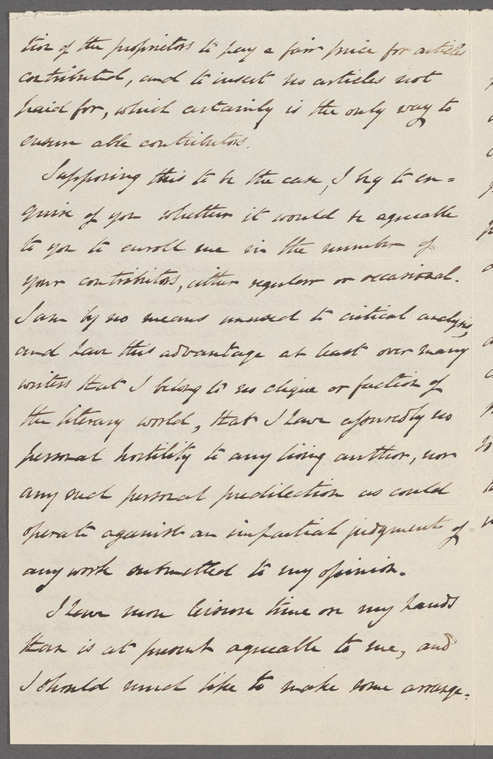 tion of the proprietors to pay a fair price for articles
contributed, and to insert no articles not
paid for, which certainly is the only way to
ensure able contributors.
Supposing this to be the case, I beg to en=
quire of you whether it would be agreeable
to you to enroll me in the number of
your contributors, either regular or occasional.
I am by no means unused to critical analysis,
and have this advantage at least over many
writers that I belong to no clique or faction of
the literary world, that I have assuredly no
personal hostility to any living author, nor
any such personal predilection as could
operate against an impartial judgment of
any work submitted to my opinion.
I have more leisure time on my hands
than is at present agreeable to me, and
I should much like to make some arrange=